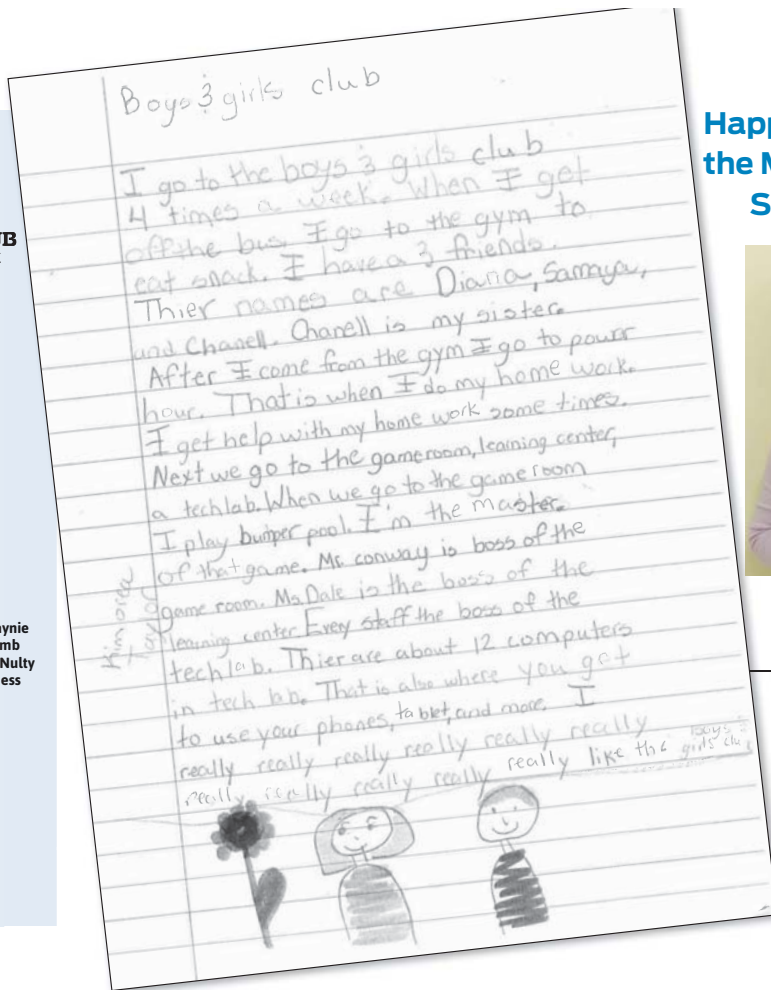 Boys & girls club
I go to the boys & girls club
4 times a week. When I get
off the bus I go to the gym to
eat snack. I have a 3 friends.
Thier names are Diana, Samaya,
and Chanell. Chanell is my sister.
After I come from the gym I go to powrr
hour. That is when I do my home work.
I get help with my home work some times.
Next we go to the gameroom, learning center,
a techlab. When we go to the game room
I play bumper pool. I'm the master
of that game. Mr. conway is boss of the
game room. Ms Dale is the boss of the
learning center. Every staff the boss of the
tech lab. Thier are about 12 computers
in tech lab. That is also where you get
to use your phones, tablet, and more. I
really really really really really really
really really really really really like the boys &
girls club
Taylor
Happ
the M
S
UB
ynie
mb
Nulty
ess